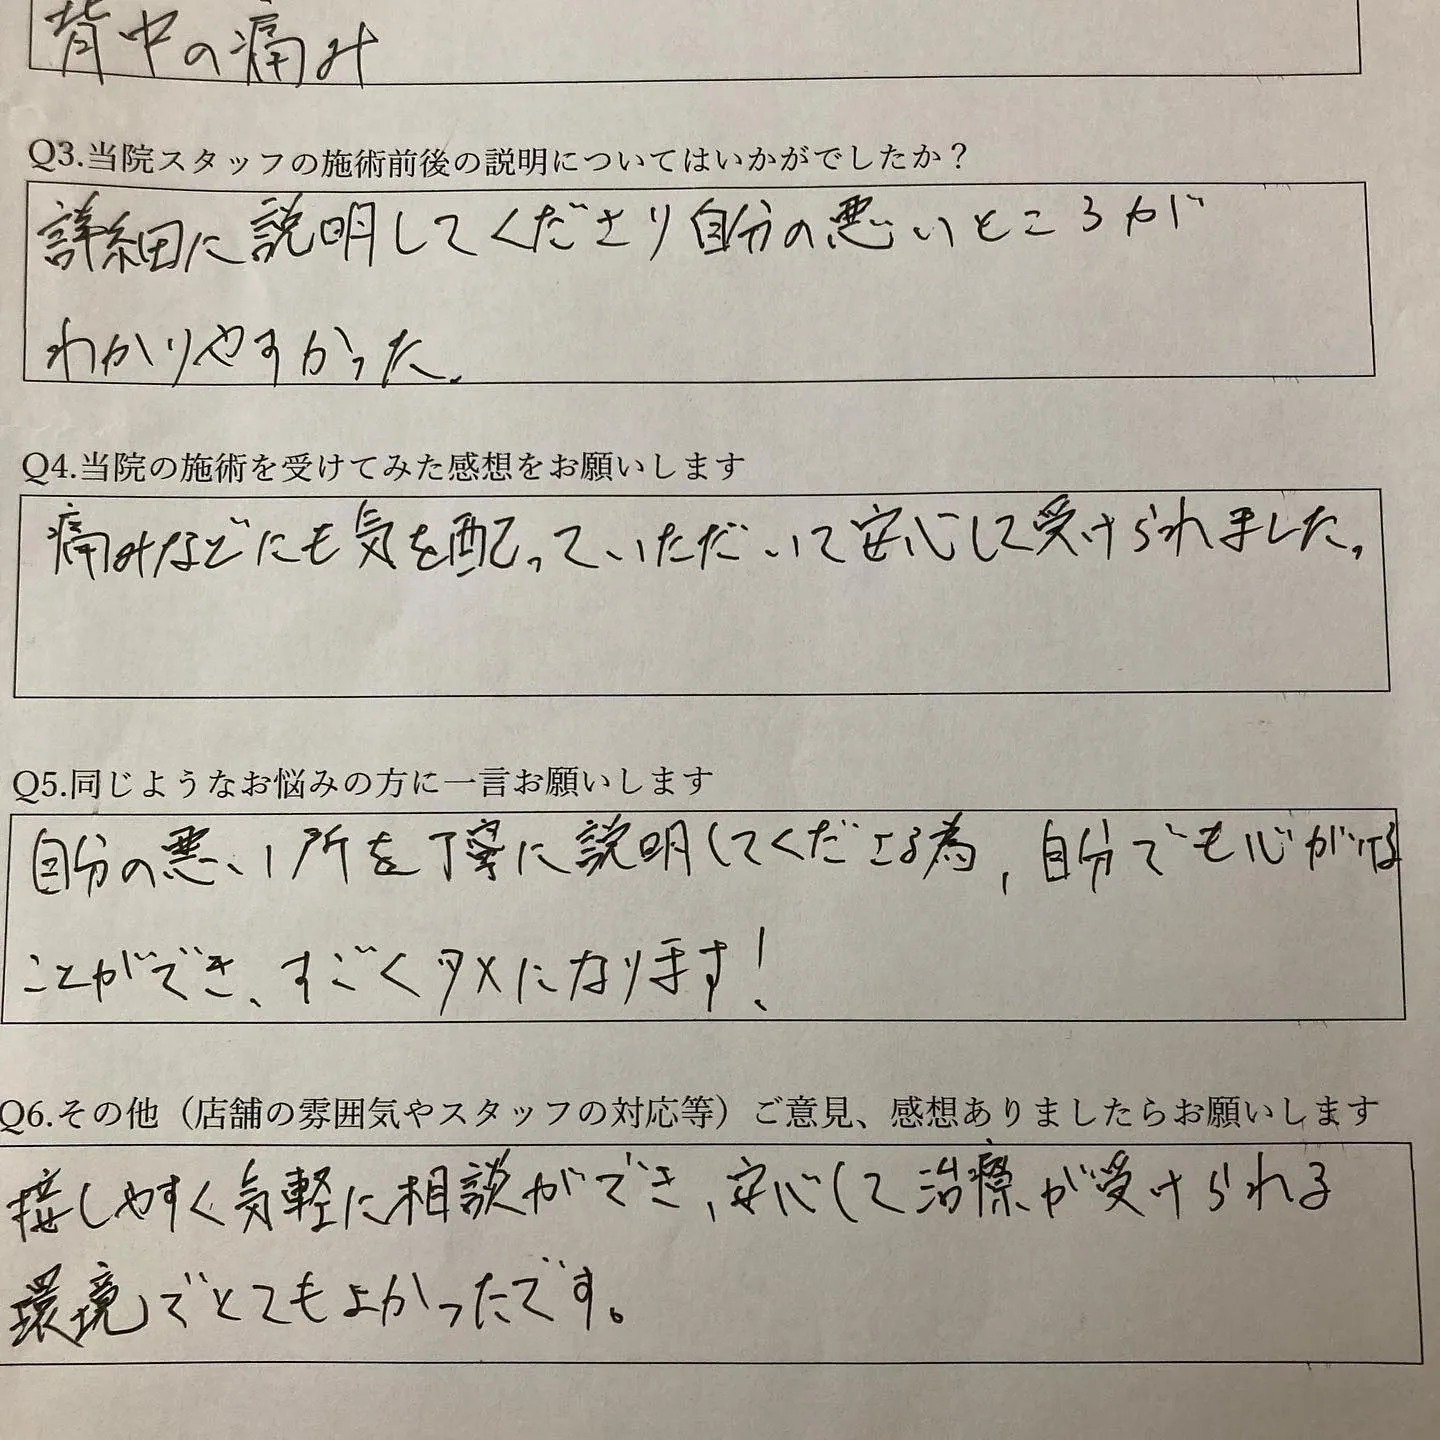 背中の痛み
Q3.当院スタッフの施術前後の説明についてはいかがでしたか？
詳細に説明してくださり自分の悪いところが
わかりやすかった.
Q4.当院の施術を受けてみた感想をお願いします
痛みなどにも気を配っていただいて安心して受けられました。
Q5.同じようなお悩みの方に一言お願いします
自分の悪い所を丁寧に説明してくださる為、自分でも心がける
ことができ、すごくタメになります！
Q6.その他（店舗の雰囲気やスタッフの対応等）ご意見、感想ありましたらお願いします
接しやすく気軽に相談ができ、安心して治療が受けられる
環境でとてもよかったです。